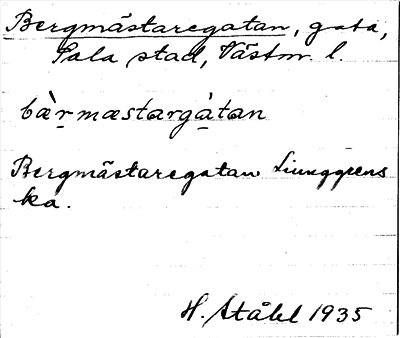 Bergmästaregatan, gata,
Sala stad, Västm. l.
bæ̀r̥mæstargàtan
Bergmästaregatan Ljunggrens
ka.
H. Ståhl 1935